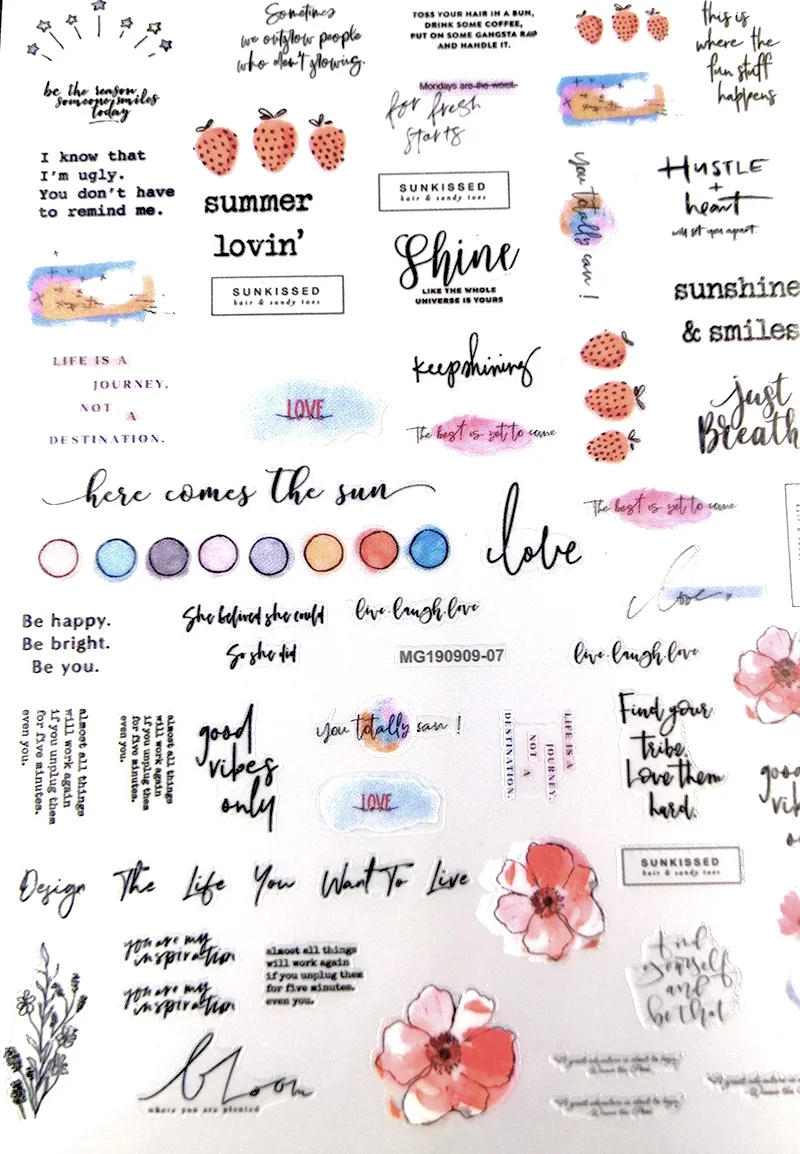 Sometimes
we outglow people
who don't glowing.
TOSS YOUR HAIR IN A BUN,
DRINK SOME COFFEE,
PUT ON SOME GANGSTA RAP
AND HANDLE IT.
this is
where the
fun stuff
happens
be the reason
someone smiles
today
Mondays are the worst.
for fresh
starts
I know that
I'm ugly.
You don't have
to remind me.
summer
lovin'
SUNKISSED
hair & sandy toes
SUNKISSED
hair & sandy toes
you totally can !
HUSTLE
+
heart
will set you apart
Shine
LIKE THE WHOLE
UNIVERSE IS YOURS
sunshine
& smiles
LIFE IS A
JOURNEY.
NOT A
DESTINATION.
LOVE
keep shining
The best is yet to come
just
Breath
here comes the sun
love
The best is yet to come
love
Be happy.
Be bright.
Be you.
She belived she could
So she did
live.laugh.love
MG190909-07
live.laugh.love
almost all things
will work again
if you unplug them
for five minutes.
even you.
almost all things
will work again
if you unplug them
for five minutes.
even you.
good
vibes
only
you totally can !
LOVE
LIFE IS A
JOURNEY.
NOT A
DESTINATION.
Find your
tribe
Love them
hard.
good
vib
SUNKISSED
hair & sandy toes
Design The Life You Want To Live
you are my
inspiration
you are my
inspiration
almost all things
will work again
if you unplug them
for five minutes.
even you.
find
yourself
and
be that
bloom
where you are planted
"A great adventure is about to begin."
- Winnie the Pooh
"A great adventure is about to begin."
- Winnie the Pooh
"A great adventure is